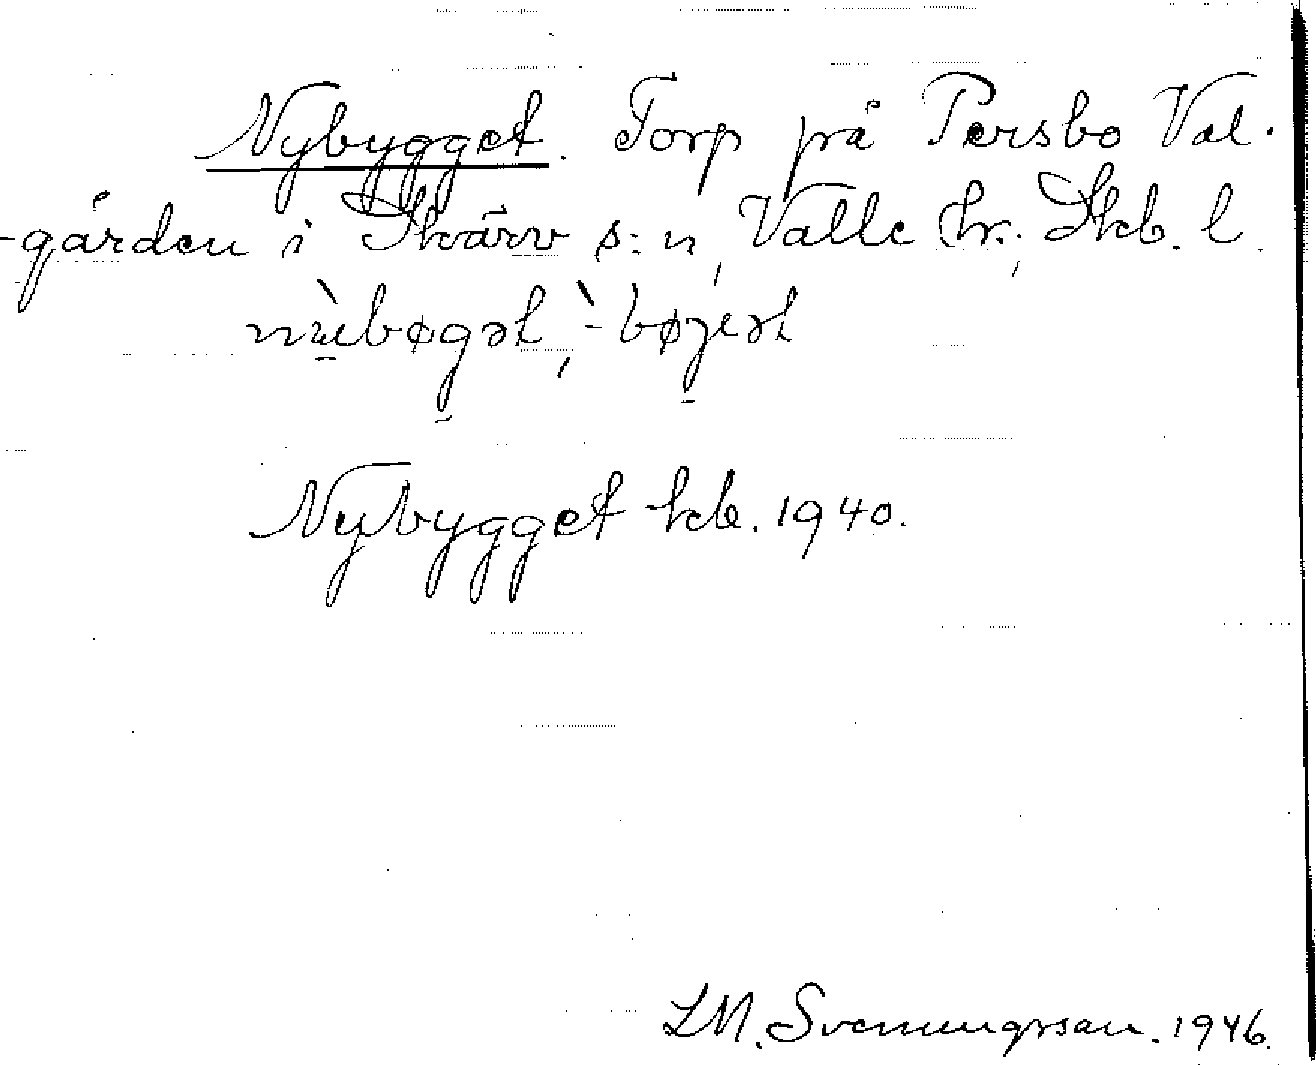 Nybygget. Torp på Persbo Val-
-gården i Skärv s:n, Valle hr., Skb. l.
Nybygget kb. 1940.
LM. Svenungsson. 1946.